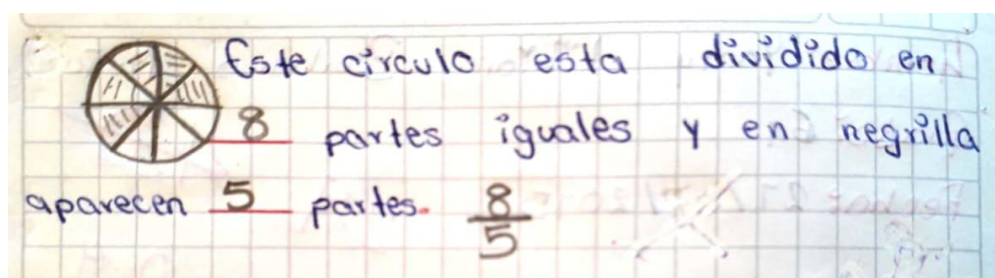 Este circulo esta dividido en
8 partes iguales y en negrilla
aparecen 5 partes. 8/5